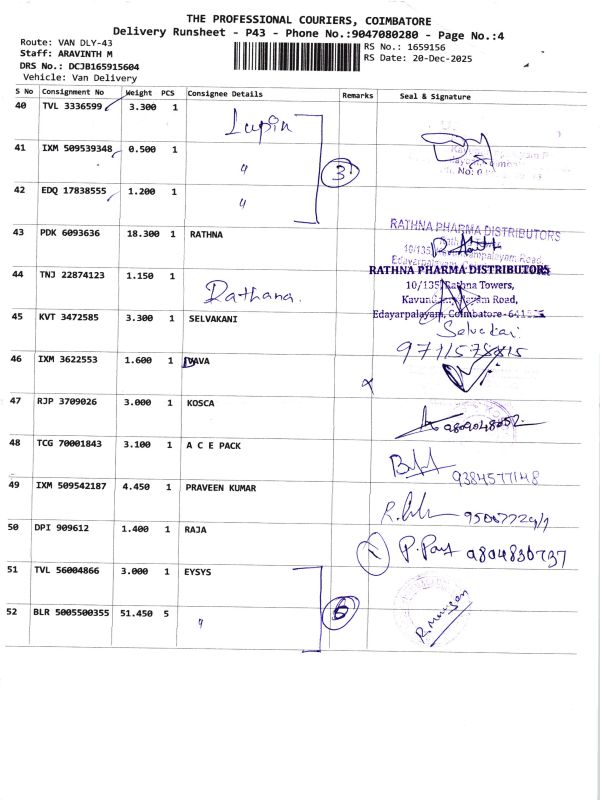 THE PROFESSIONAL COURIERS, COIMBATORE
Delivery Runsheet - P43 - Phone No.:9047080280 - Page No.:4
Route: VAN DLY-43
Staff: ARAVINTH M
DRS No.: DCJB165915604
Vehicle: Van Delivery
RS No.: 1659156
RS Date: 20-Dec-2025
S No Consignment No Weight PCS Consignee Details Remarks Seal & Signature
40 TVL 3336599 3.300 1 Lupin
41 IXM 509539348 0.500 1 〃 3
42 EDQ 17838555 1.200 1 〃
43 PDK 6093636 18.300 1 RATHNA
RATHNA PHARMA DISTRIBUTORS
44 TNJ 22874123 1.150 1 Rathana.
RATHNA PHARMA DISTRIBUTORS
10/135, Rathna Towers,
Road,
Edayarpalayam, Coimbatore-
45 KVT 3472585 3.300 1 SELVAKANI
46 IXM 3622553 1.600 1 VAVA
47 RJP 3709026 3.000 1 KOSCA
48 TCG 70001843 3.100 1 A C E PACK 9384577148
49 IXM 509542187 4.450 1 PRAVEEN KUMAR
50 DPI 909612 1.400 1 RAJA 1
51 TVL 56004866 3.000 1 EYSYS
52 BLR 5005500355 51.450 5 〃 6 R. Murugan